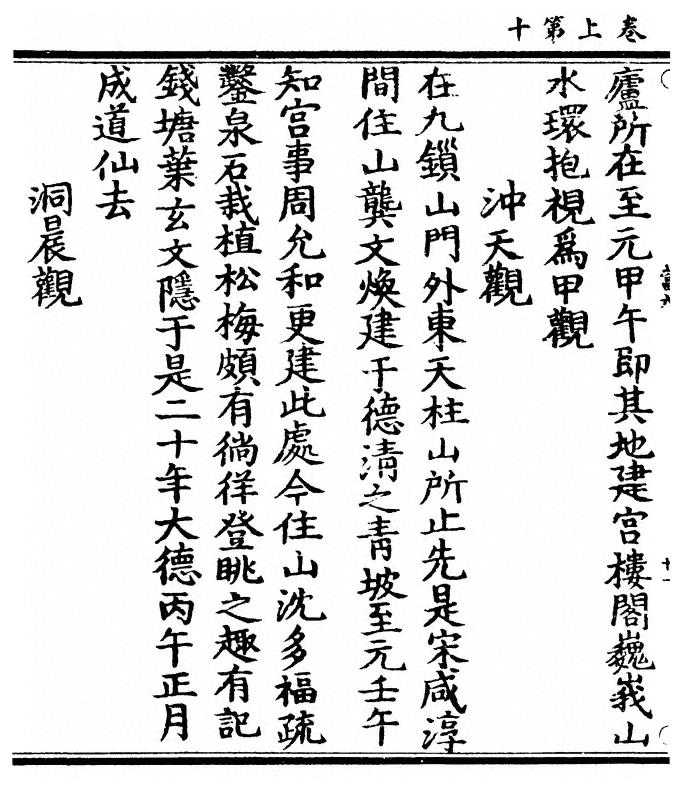 卷上第十
廬所在至元甲午即其地建宮樓閣巍峩山
水環抱視爲甲觀
沖天觀
在九鎖山門外東天柱山所止先是宋咸淳
間住山龔文煥建于德清之青坡至元壬午
知宮事周允和更建此處今住山沈多福疏
鑿泉石栽植松梅頗有徜徉登眺之趣有記
錢塘葉玄文隱于是二十年大德丙午正月
成道仙去
洞晨觀